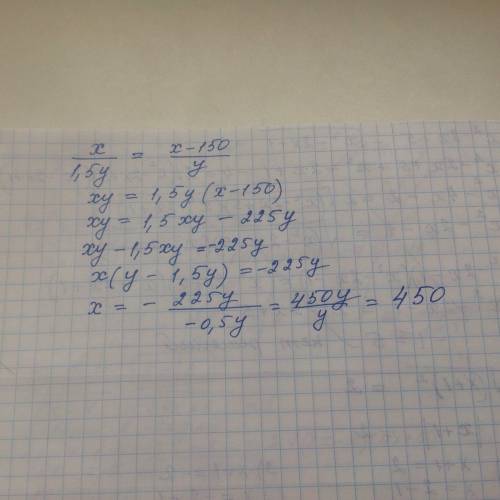 x/1,5y = x-150/y
xy = 1,5y (x-150)
xy = 1,5xy - 225y
xy - 1,5xy = -225y
x(y - 1,5y) = -225y
x = - 225y/-0,5y = 450y/y = 450